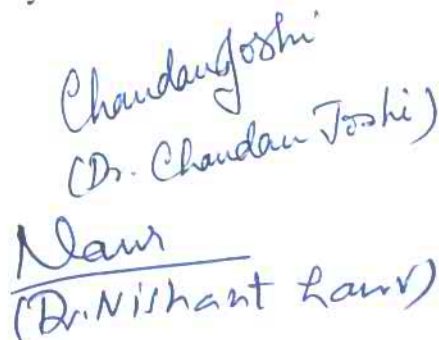 Chandan Joshi
(Dr. Chandan Joshi)
(Dr. Nishant